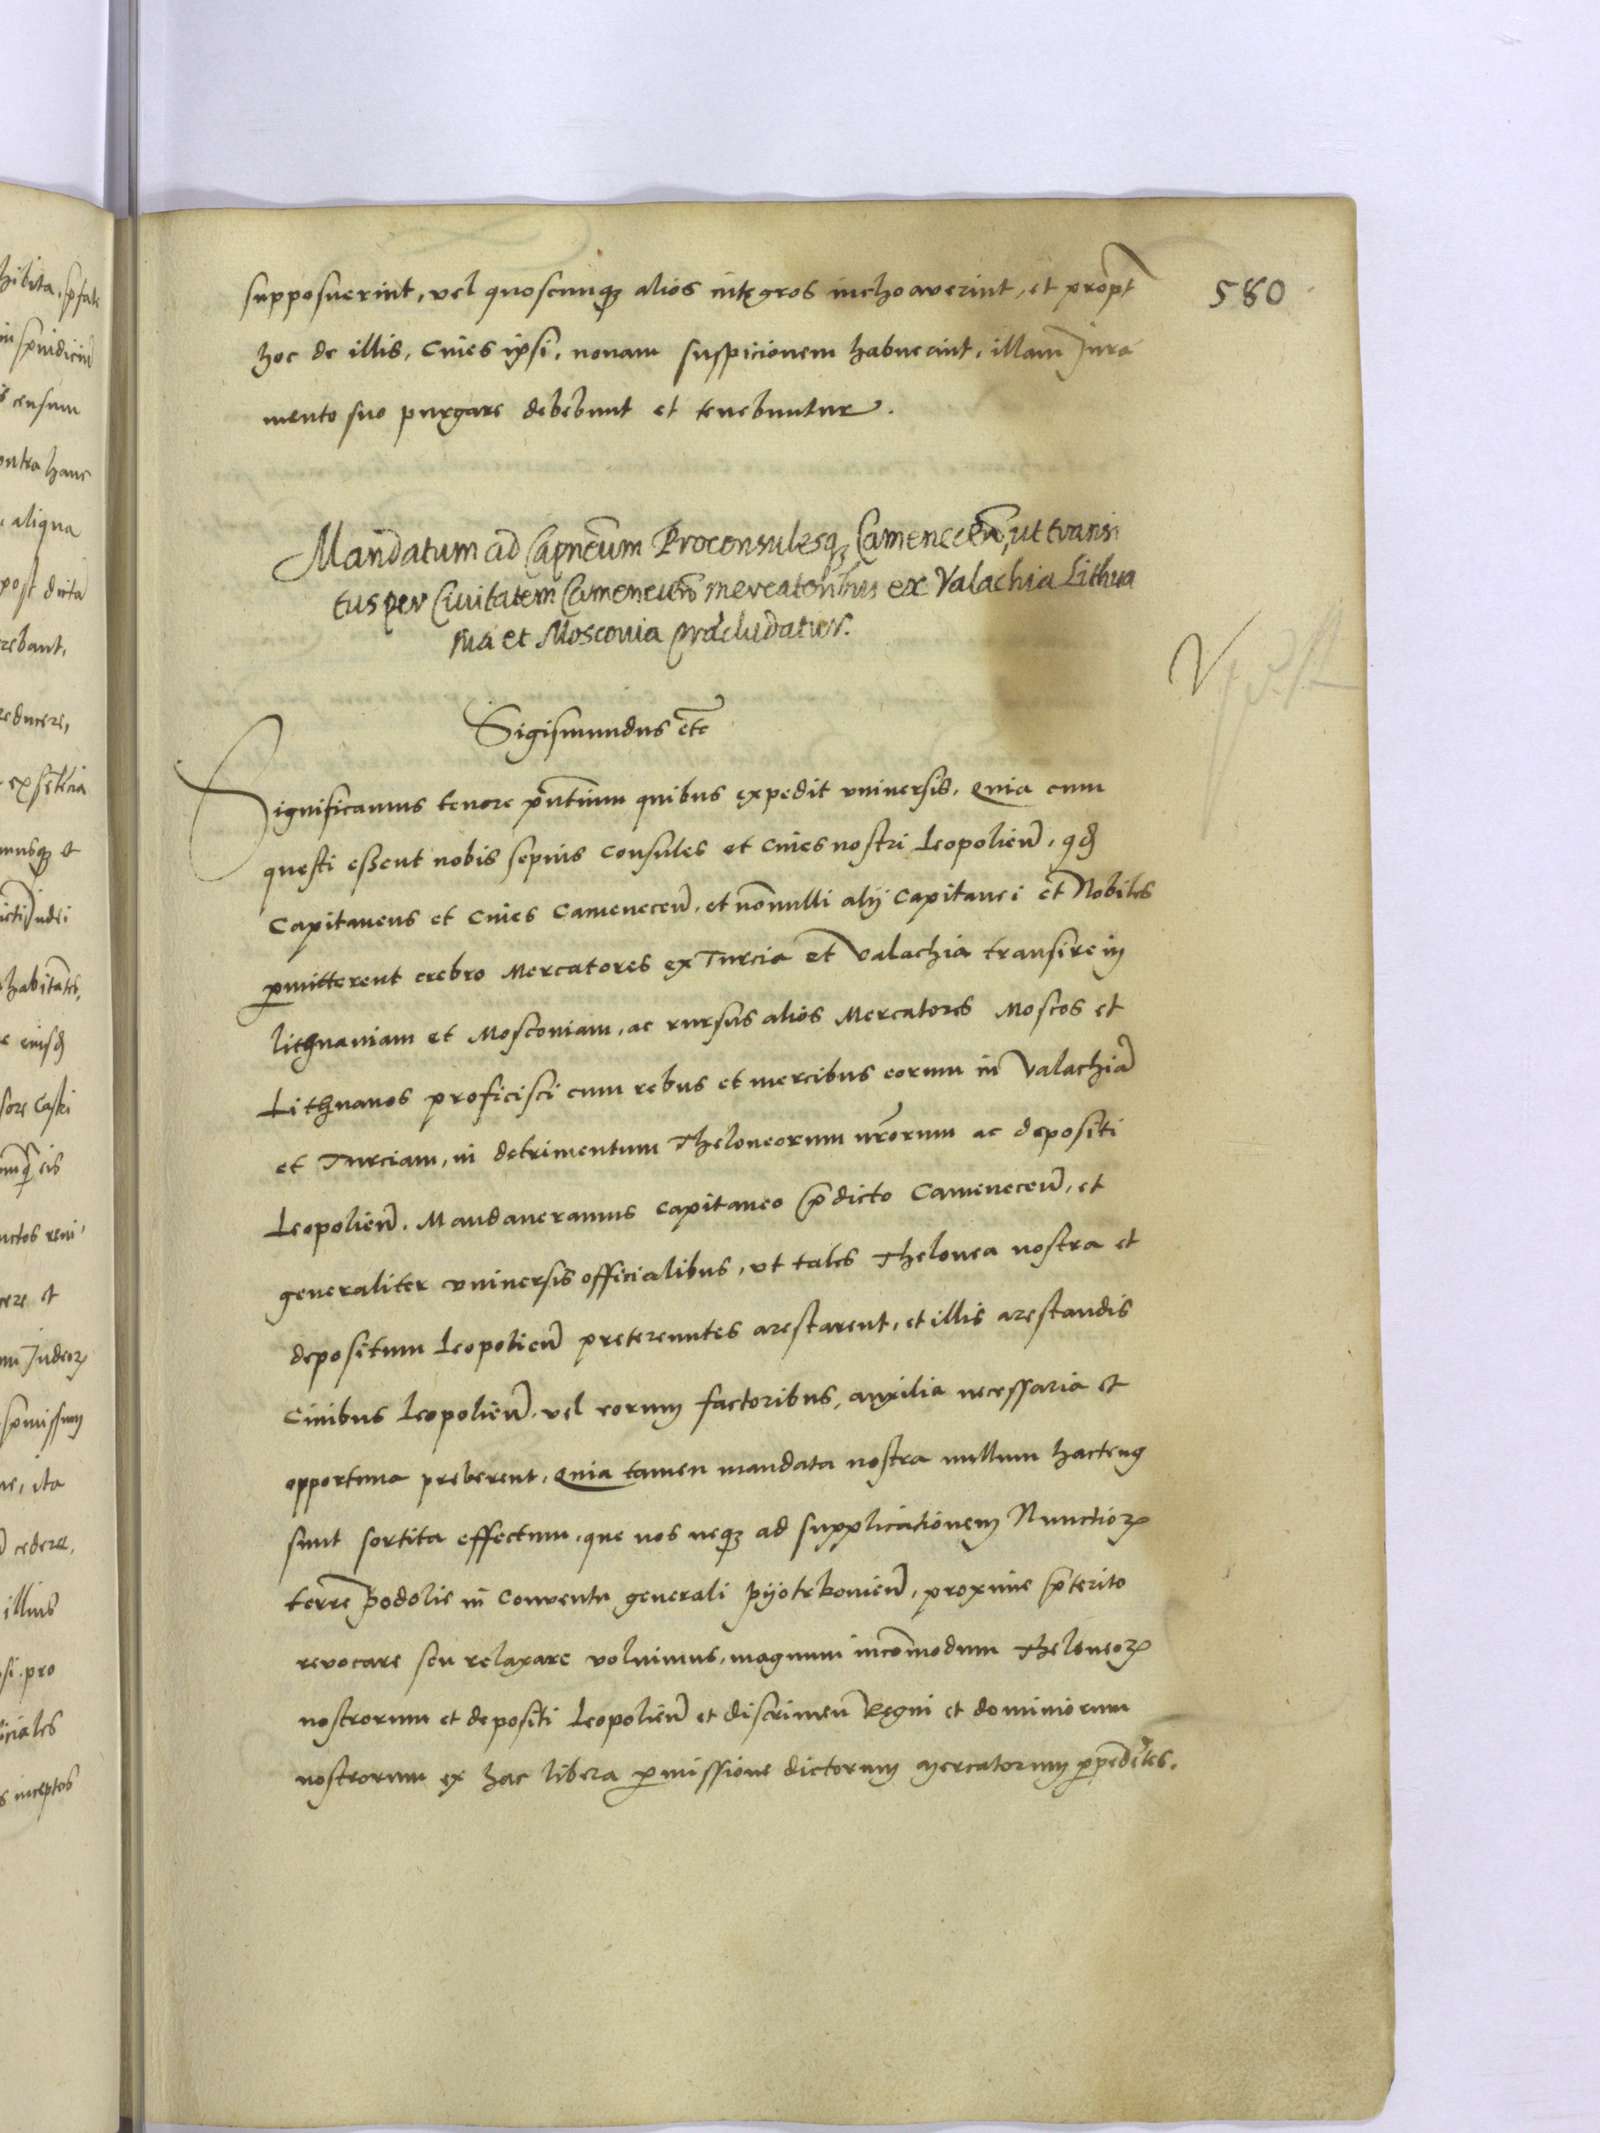 supposuerint, vel quoscunq3 alios integros inchoaverint, et propt̃
580
hoc de illis, Cives ipsi, novam suspicionem habuerint, illam Jura
mento suo purgare debebunt et tenebuntur.
Mandatum ad Capneum Proconsulesq3 Camenecen̄, ut transi
tus per Civitatem Camenecen̄ mercatoribus ex Valachia Lithua
nia et Moscovia praecludatur.
Sigismundus etc̄
Significamus tenore pn̄tium quibus expedit universis, Quia cum
questi essent nobis sepius Consules et Cives nostri Leopolien̄, qd
Capitaneus et Cives Camenecen̄, et nōnulli alij Capitanei et Nobiles
pmitterent crebro Mercatores ex Turcia et Valachia transire in
Lithuaniam et Moscoviam, ac rursus alios Mercatores Moscos et
Lithuanos proficisci cum rebus et mercibus eorum in Valachiā
et Turciam, in detrimentum Theloneorum nr̄orum ac depositi
Leopolien̄. Mandaveramus Capitaneo p̄dicto Camenecen̄, et
generaliter universis officialibus, ut tales Thelonea nostra et
depositum Leopolien̄ pretereuntes arestarent, et illis arestandis
Civibus Leopolien̄, vel eorum factoribus, auxilia necessaria et
opportuna preberent, Quia tamen mandata nostra nullum hacteng
sunt sortita effectum, que nos neq3 ad supplicationem Nunctioꝝ
terre Podolie in Conventu generali Pijotrkovien̄, proxime p̄terito
revocare seu relaxare voluimus, magnum incōmodum Theloneoꝝ
nostrorum et depositi Leopolien̄ et discrimen Regni et dominiorum
nostrorum ex hac libera pmissione dictorum mercatorum ppendētes.